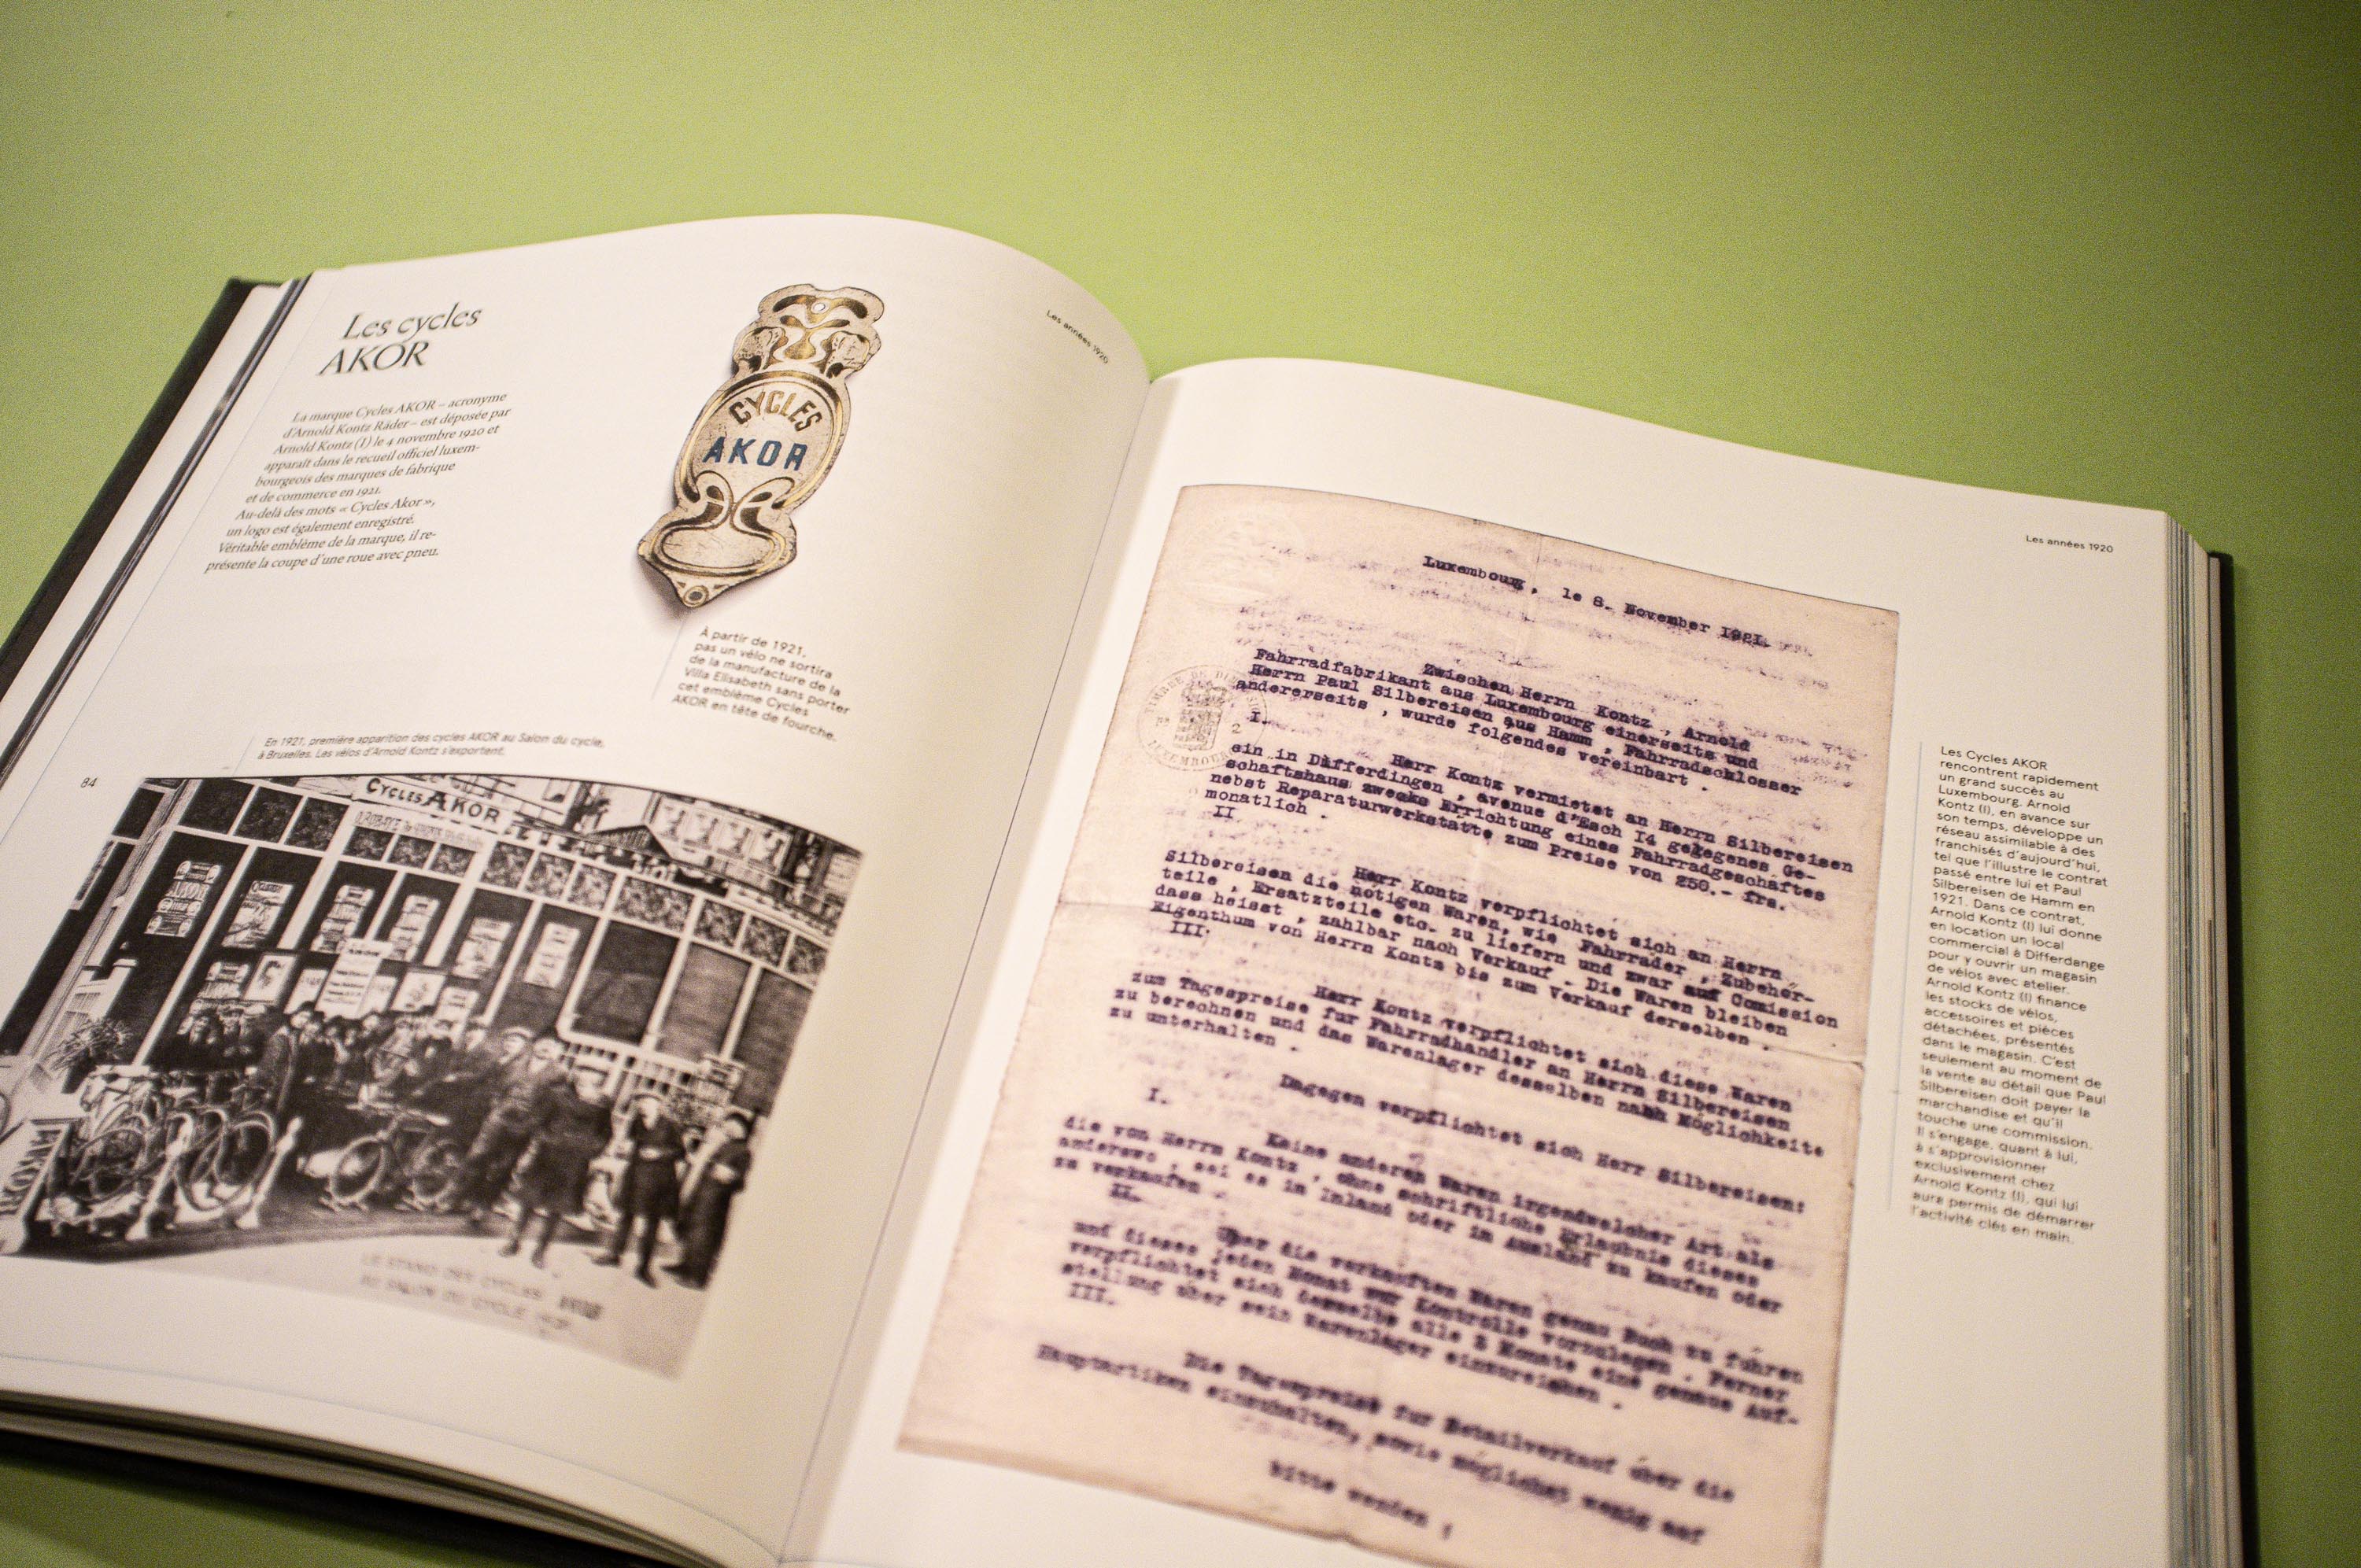 Les cycles
AKOR
La marque Cycles AKOR – acronyme
d'Arnold Kontz Räder – est déposée par
Arnold Kontz (I) le 4 novembre 1920 et
apparaît dans le recueil officiel luxem-
bourgeois des marques de fabrique
et de commerce en 1921.
Au-delà des mots « Cycles Akor »,
un logo est également enregistré.
Véritable emblème de la marque, il re-
présente la coupe d'une roue avec pneu.
CYCLES
AKOR
Les années 1920
À partir de 1921,
pas un vélo ne sortira
de la manufacture de la
Villa Elisabeth sans porter
cet emblème Cycles
AKOR en tête de fourche.
En 1921, première apparition des cycles AKOR au Salon du cycle,
à Bruxelles. Les vélos d'Arnold Kontz s'exportent.
84
CYCLES AKOR
AKOR
LE STAND DES CYCLES AKOR
AU SALON DU CYCLE
Les années 1920
Luxembourg, le 8. November 1921.
Zwischen Herrn Kontz , Arnold
Fahrradfabrikant aus Luxembourg einerseits und
Herrn Paul Silbereisen aus Hamm , Fahrradschlosser
andererseits , wurde folgendes vereinbart .
I.
Herr Kontz vermietet an Herrn Silbereisen
ein in Differdingen , avenue d'Esch I4 gelegenes Ge-
schaftshaus zwecks Errichtung eines Fahrradgeschäftes
nebst Reparaturwerkstatte zum Preise von 250.- frs.
monatlich .
II
Herr Kontz verpflichtet sich an Herrn
Silbereisen die nötigen Waren, wie Fahrrader , Zubehör-
teile , Ersatzteile etc. zu liefern und zwar auf Comission
dass heisst , zahlbar nach Verkauf . Die Waren bleiben
Eigenthum von Herrn Kontz bis zum Verkauf derselben .
III.
Herr Kontz verpflichtet sich diese Waren
zum Tagespreise fur Fahrradhandler an Herrn Silbereisen
zu berechnen und das Warenlager desselben nahh Möglichkeite
zu unterhalten .
Dagegen verpflichtet sich Herr Silbereisen:
I.
Keine anderen Waren irgendwelcher Art als
die von Herrn Kontz , ohne schriftliche Erlaubnis dieses
anderswo , sei es in Inland oder im Ausland zu kaufen oder
zu verkaufen .
II.
Uber die verkauften Waren genau Buch zu fuhren
und dieses jeden Monat zur Kontrolle vorzulegen . Ferner
verpflichtet sich derselbe alle 2 Monate eine genaue Auf-
stellung über sein Warenlager einzureichen .
III.
Die Tagespreise fur Detailverkauf über die
Hauptartiken einzuhalten, sowie möglichst wenig auf
bitte wenden !
Les Cycles AKOR
rencontrent rapidement
un grand succès au
Luxembourg. Arnold
Kontz (I), en avance sur
son temps, développe un
réseau assimilable à des
franchisés d'aujourd'hui,
tel que l'illustre le contrat
passé entre lui et Paul
Silbereisen de Hamm en
1921. Dans ce contrat,
Arnold Kontz (I) lui donne
en location un local
commercial à Differdange
pour y ouvrir un magasin
de vélos avec atelier.
Arnold Kontz (I) finance
les stocks de vélos,
accessoires et pièces
détachées, présentés
dans le magasin. C'est
seulement au moment de
la vente au détail que Paul
Silbereisen doit payer la
marchandise et qu'il
touche une commission.
Il s'engage, quant à lui,
à s'approvisionner
exclusivement chez
Arnold Kontz (I), qui lui
aura permis de démarrer
l'activité clés en main.